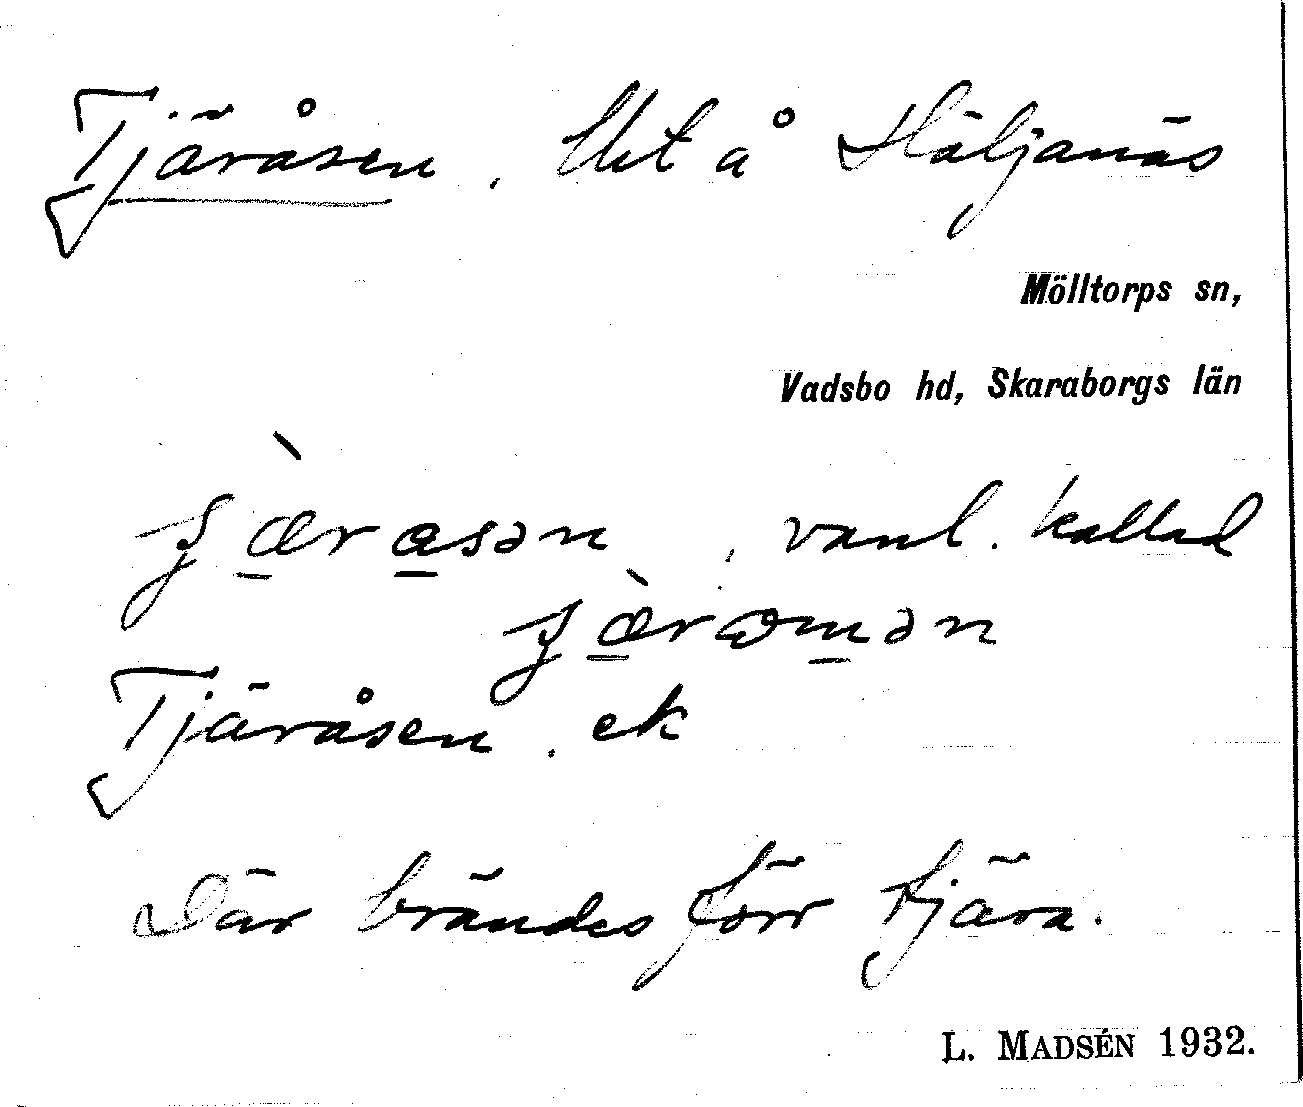 Tjäråsen. Utm å Häljanäs
Mölltorps sn,
Vadsbo hd, Skaraborgs län
vanl. kallad
Tjäråsen. ek
Där brändes förr tjära.
L. MADSÉN 1932.